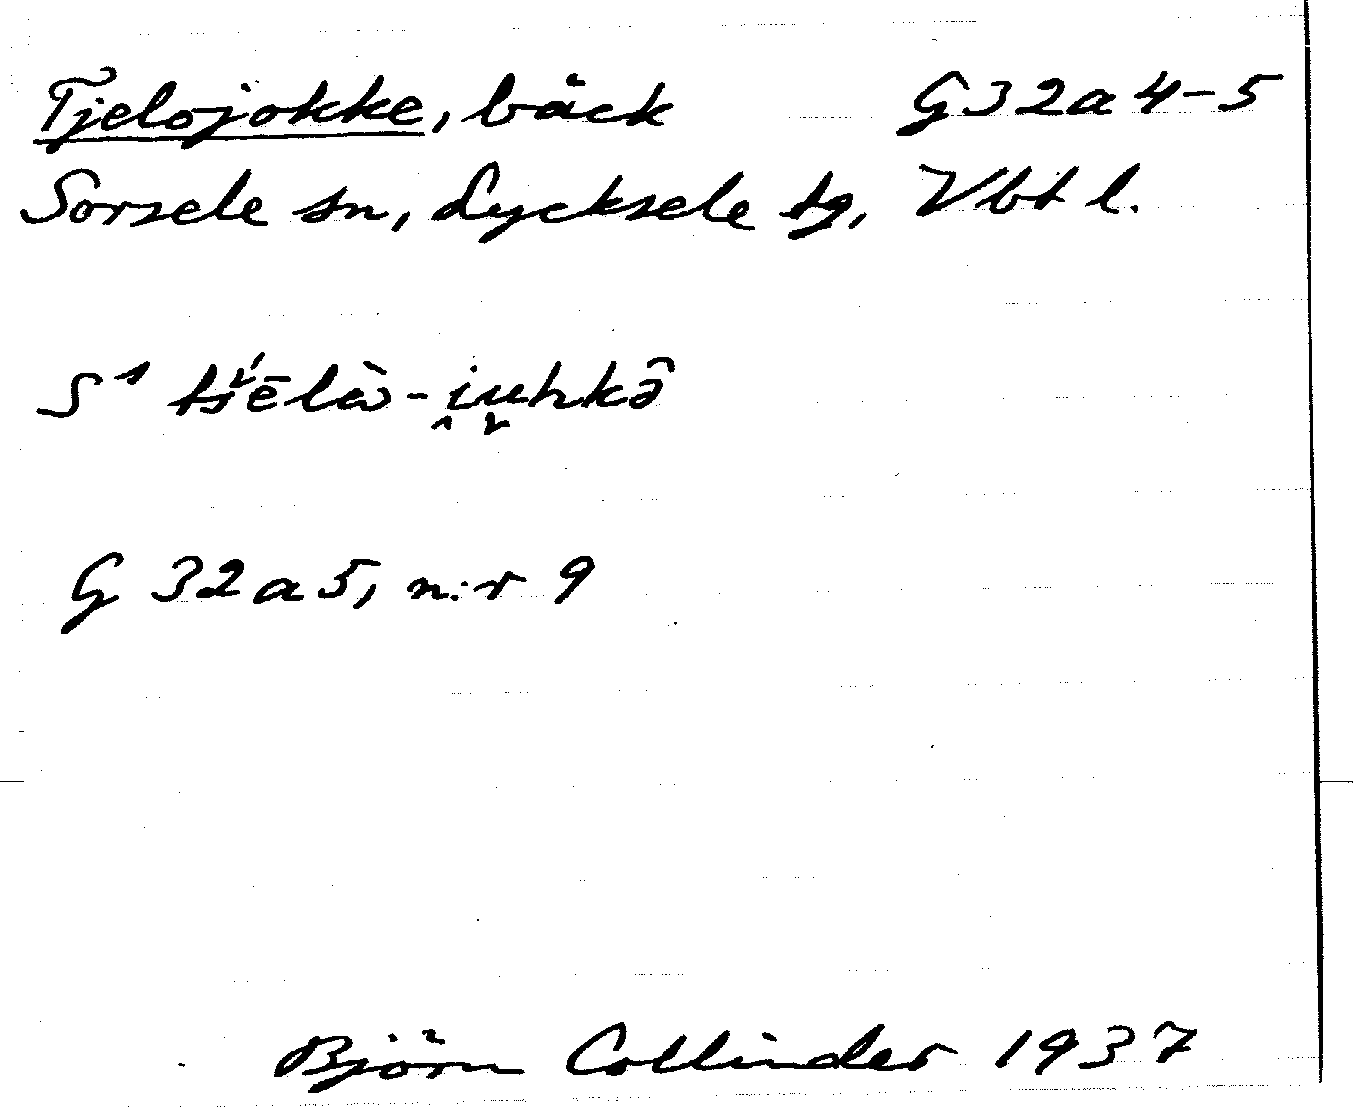 Tjelojokke, bäck G32a4-5
Sorsele sn, Lycksele tg, Vbt l.
S¹ tš́ēlà-i̭u̬hkə̑
G 32a5, n:r 9
Björn Collinder 1937